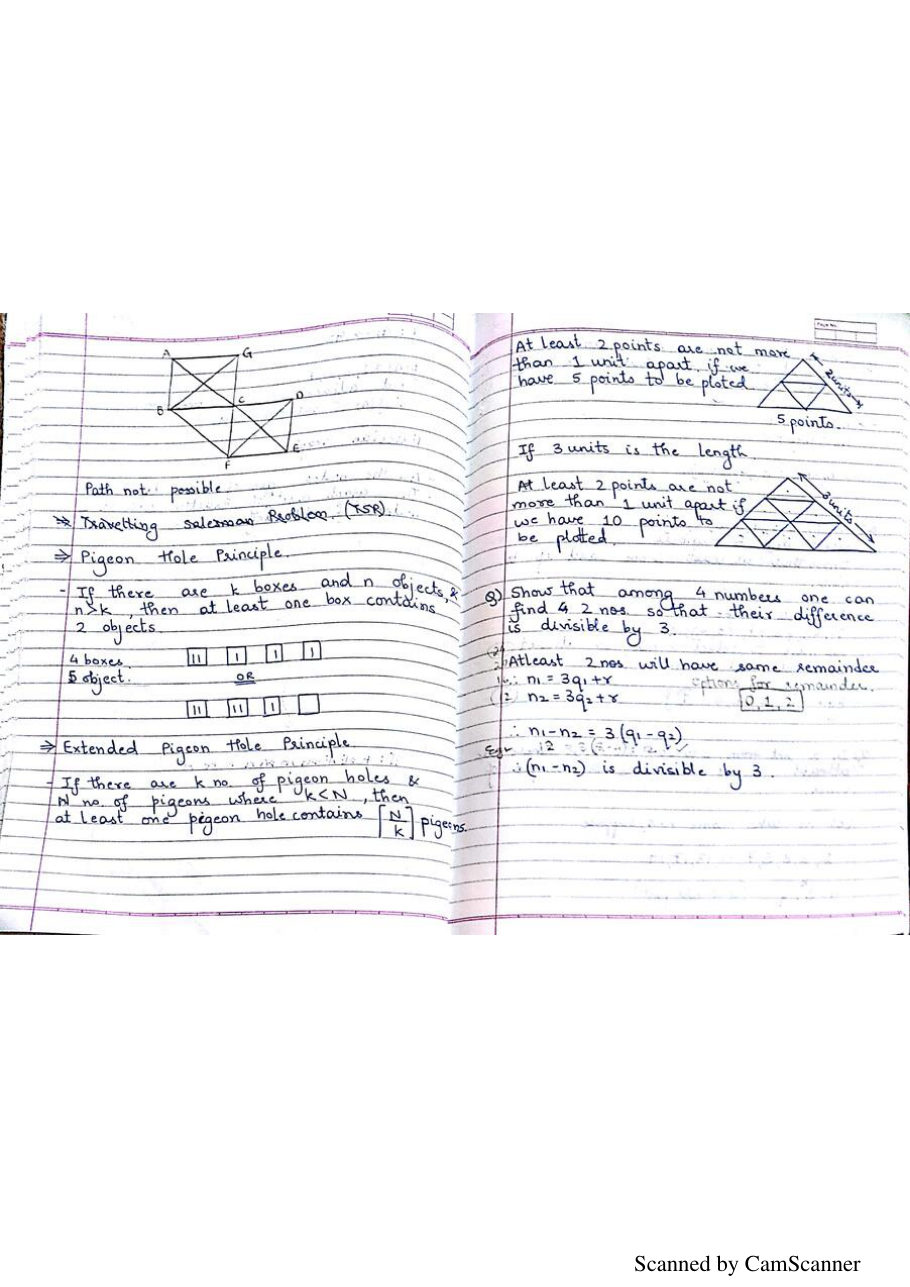 A
G
B
C
D
E
F
Path not possible
⇒ Travelling salesman Problem (TSP).
⇒ Pigeon Hole Principle.
- If there are k boxes and n objects, &
n>k, then at least one box contains
2 objects.
4 boxes.
5 object.
OR
⇒ Extended Pigeon Hole Principle.
- If there are k no. of pigeon holes &
N no. of pigeons where k<N, then
at least one pegeon hole contains ⌈N/k⌉ pigeons.
Page No.
At least 2 points are not more
than 1 unit apart if we
have 5 points to be ploted
2units
5 points.
If 3 units is the length.
At least 2 points are not
more than 1 unit apart if
we have 10 points to
be plotted.
3 units
Q) Show that among 4 numbers one can
find 4 2 nos. so that their difference
is divisible by 3.
Atleast 2 nos will have same remainder
∴ n1 = 3q1 + r
options for remainder.
n2 = 3q2 + r
0, 1, 2
∴ n1 - n2 = 3(q1 - q2)
∴ (n1 - n2) is divisible by 3.
Scanned by CamScanner